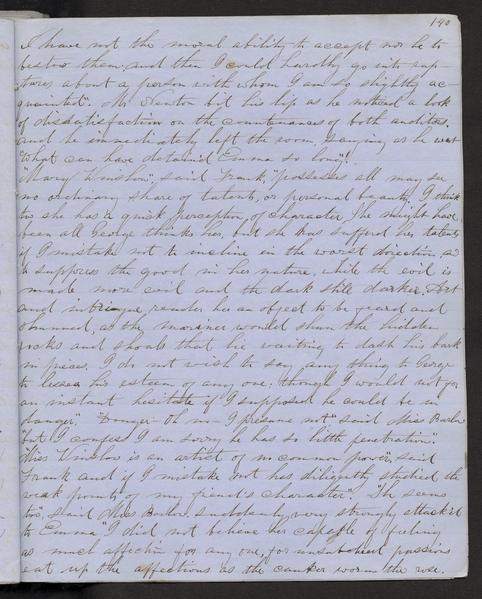 140
I have not the moral ability to accept nor he to
bestow them, and then I could hardly go into rap
tures about a person with whom I am so slightly ac
quainted". Mr Denton bit his lip as he noticed a look
of dissatisfaction on the countenances of both auditors.
and he immediately left the room. Saying as he went
"What can have detained Emma so long"!
"Mary Winslow", said Frank, "possesses all may see
no ordinary share of talents, or personal beauty, I think
too she has a quick perception of character. She might have
been all George thinks her, but she has suffered her talents
if I mistake not to incline in the worst direction, and
to suppress the good in her nature, while the evil is
made more evil and the dark still darker. Art
and intriegue, render her an object to be feared and
shunned, as the mariner would shun the hidden
rocks and shoals that lie waiting to dash his bark
in pieces. I do not wish to say any thing to George
to lessen his esteem of any one, though I would not for
an instant hesitate if I supposed he could be in
danger". "Danger- Oh no- I presume not" said Miss Barlow
but I confess I am sorry he has so little penetration".
"Miss Winslow is an artist of no common power", said
Frank and if I mistake not has diligently studied the
weak points of my friend's character". "She seems
too", said Miss Barlow, suddenly very strongly attach'd
to Emma" I did not believe her capable of feeling
as much affection for any one, for unsatisfied passions
eat up the affections as the canker worm the rose.